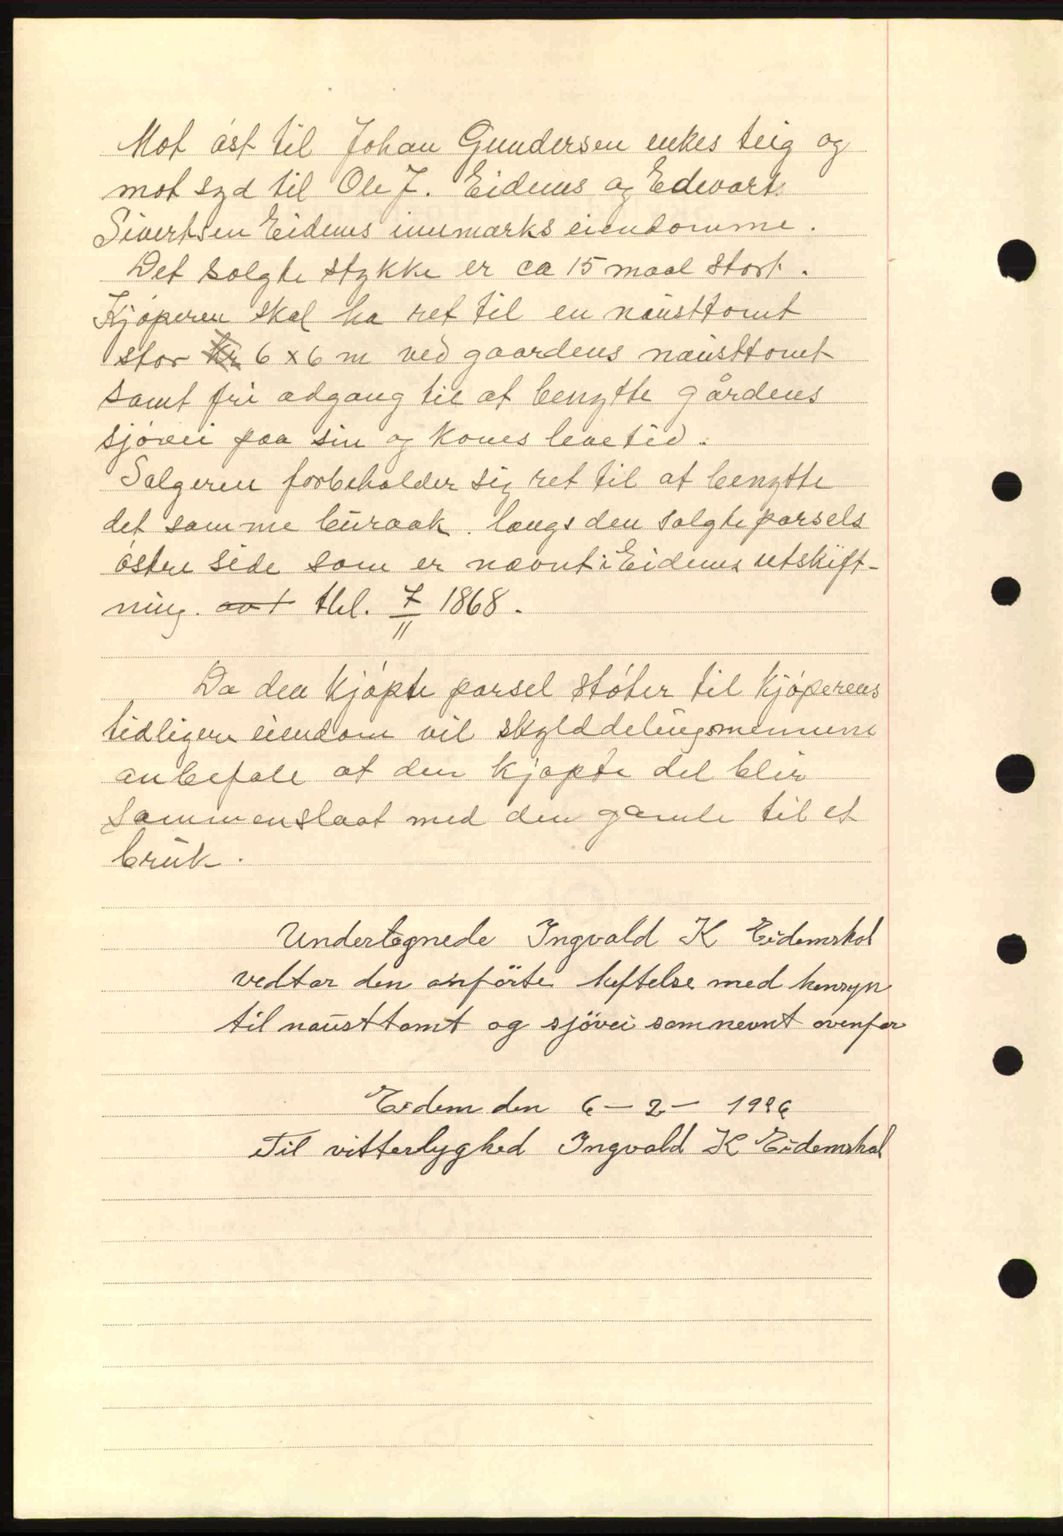 Mot øst til Johan Gundersen enkes teig og
mot syd til Ole J. Eidems og Edevart
Sivertsen Eidems innmarks eiendomme.
Det solgte stykke er ca 15 maal stort.
Kjøperen skal ha ret til en nausttomt
stor 6 x 6 m ved gaardens nausttomt
samt fri adgang til at benytte gårdens
sjøvei paa sin og kones levetid.
Selgeren forbeholder sig ret til at benytte
det samme buraak langs den solgte parsels
østre side som er nævnt i Eidems utskift-
ning. avt thl. 7/11 1868.
Da den kjøpte parsel støter til kjøperens
tidligere eiendom vil skylddelingsmennene
anbefale at den kjøpte del blir
sammenslaat med den gamle til et
bruk.
Undertegnede Ingvald K Eidemskal
vedtar den anførte heftelse med hensyn
til nausttomt og sjövei som nevnt ovenfor
Eidem den 6 - 2 - 1936
Til vitterlyghed Ingvald K Eidemskal